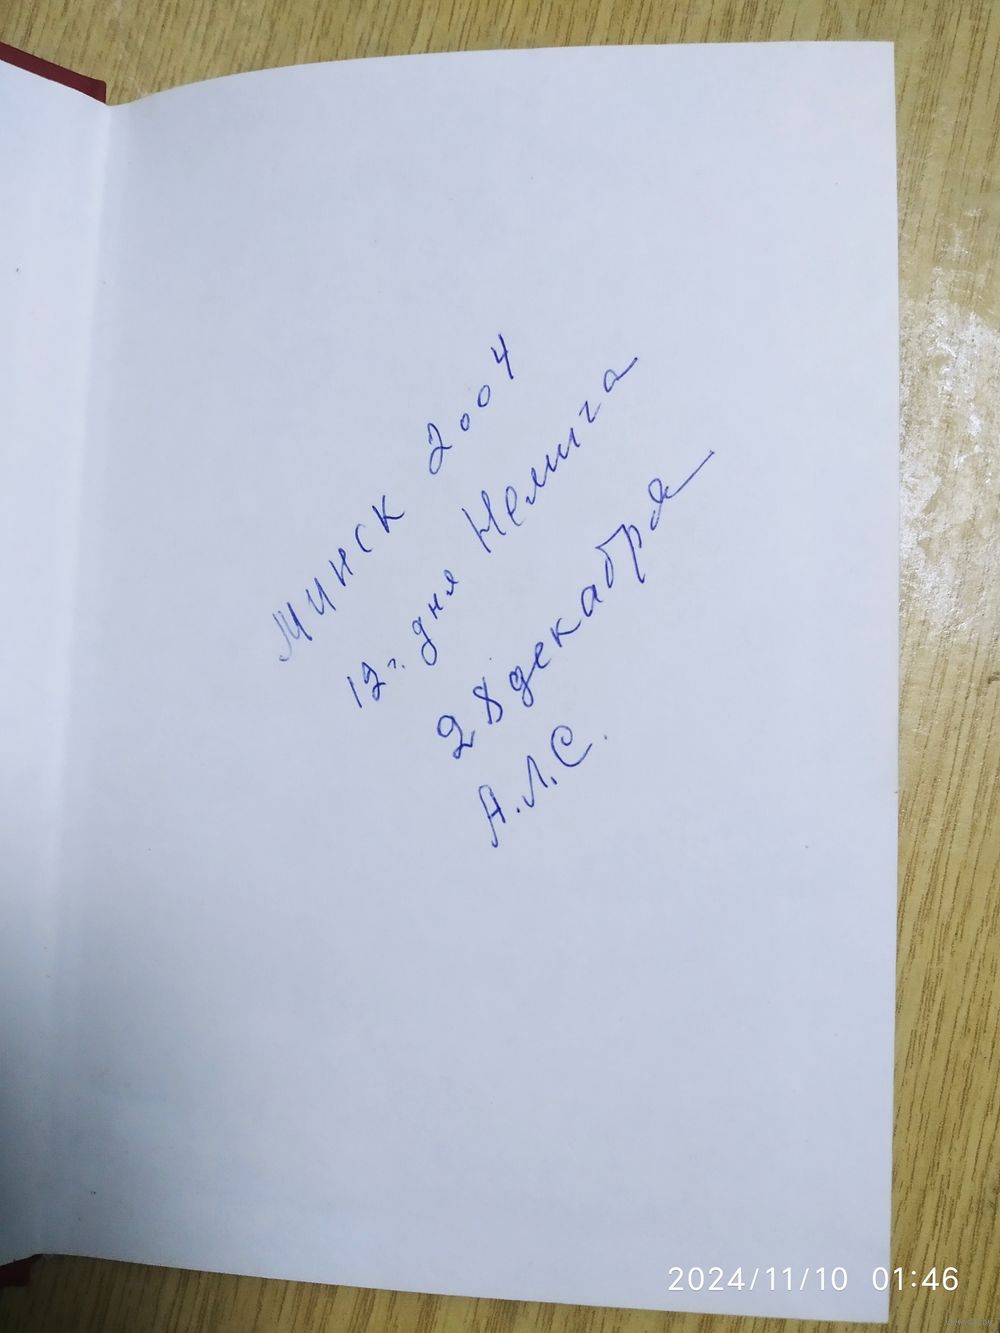 Минск 2004
12 ч. дня Немига
28 декабря
А.Л.С.
2024/11/10 01:46